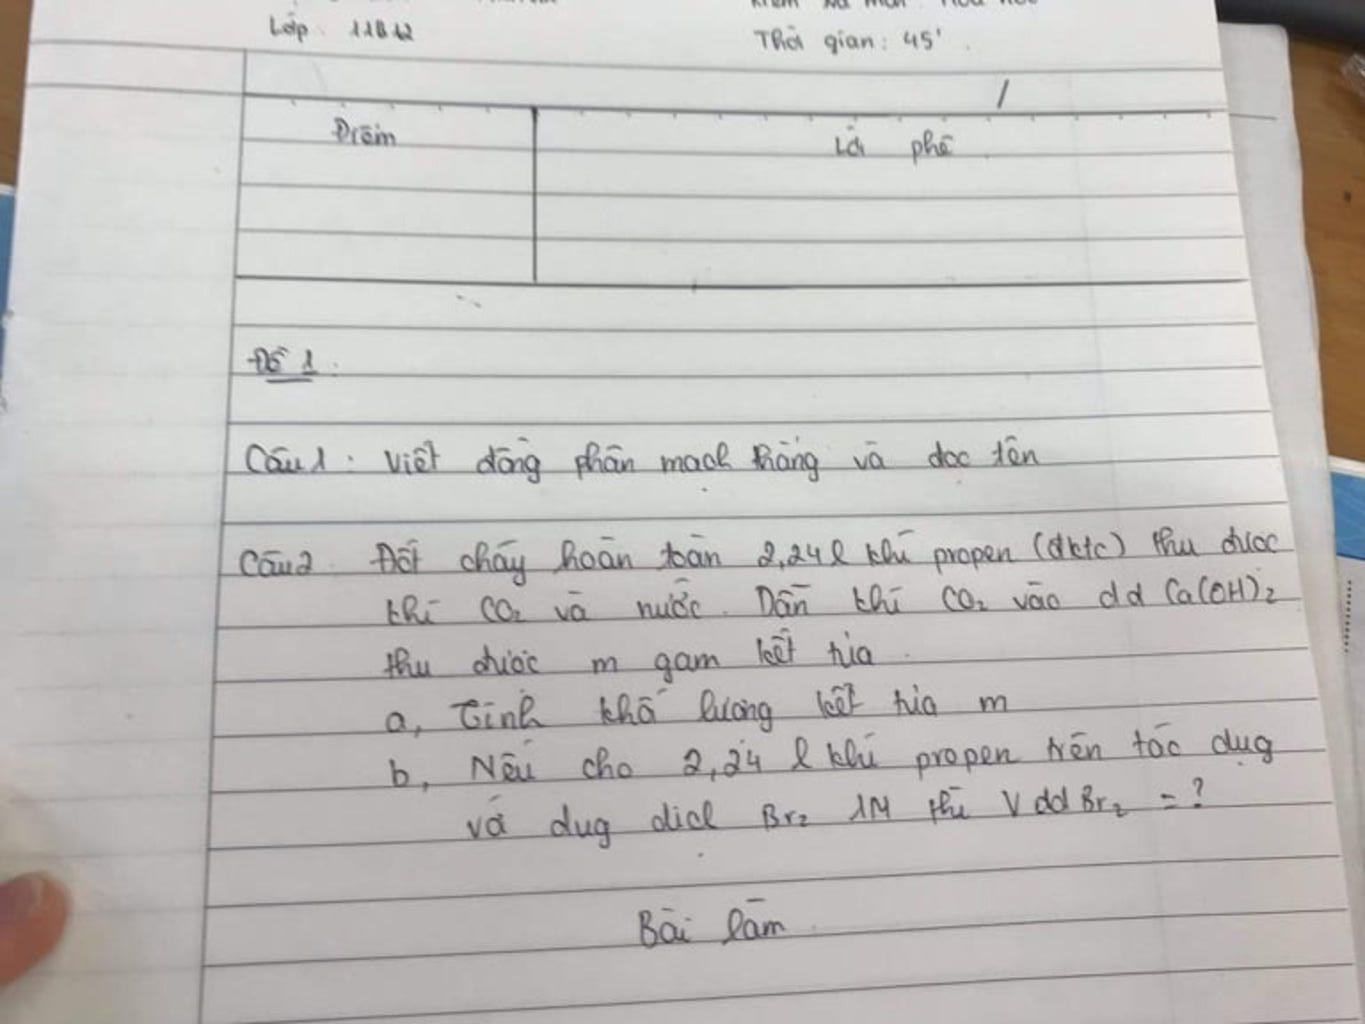 Lớp: 11B12
Thời gian: 45'
Điểm
Lời phê
Đề 1:
Câu 1: Viết đồng phân mạch thẳng và đọc tên
Câu 2 Đốt cháy hoàn toàn 2,24 l khí propen (đktc) thu được
khí CO₂ và nước. Dẫn khí CO₂ vào dd Ca(OH)₂
thu được m gam kết tủa.
a, Tính khối lượng kết tủa m
b, Nếu cho 2,24 l khí propen trên tác dụg
với dug dịch Br₂ 1M thì V dd Br₂ = ?
Bài làm